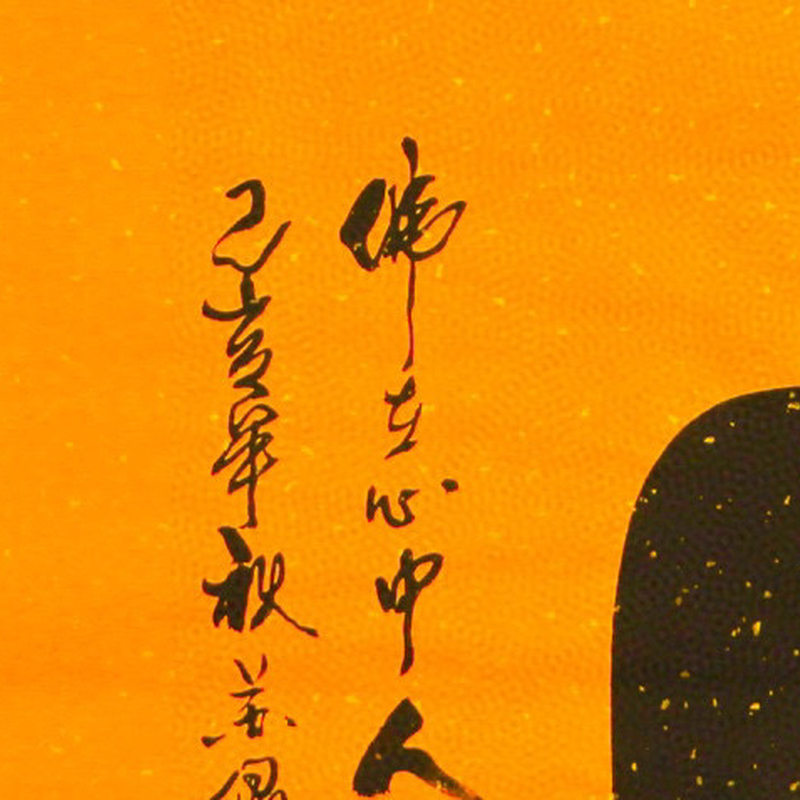 佛在心中人
己亥年秋苏